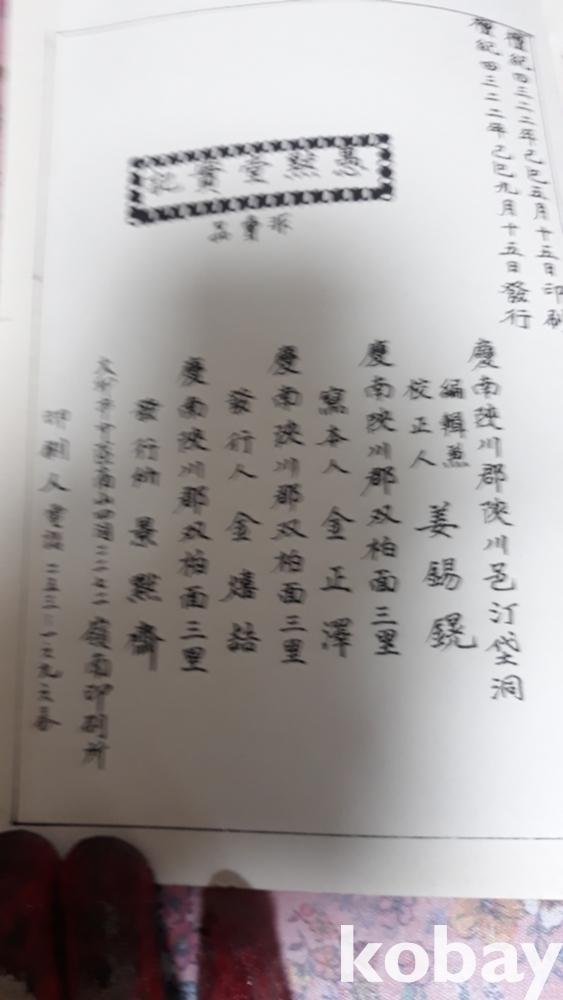 檀紀四三二二年己巳五月十五日印刷
檀紀四三二二年己巳九月十五日發行
愚默堂實記
非賣品
慶南陜川郡陜川邑汀垈洞
編輯兼
校正人 姜錫鋧
慶南陜川郡双柏面三里
寫本人 金正澤
慶南陜川郡双柏面三里
發行人 金熺喆
慶南陜川郡双柏面三里
發行所 景默齋
嶺南印刷所
印刷人 電話 二五三-一六九六番
kobay